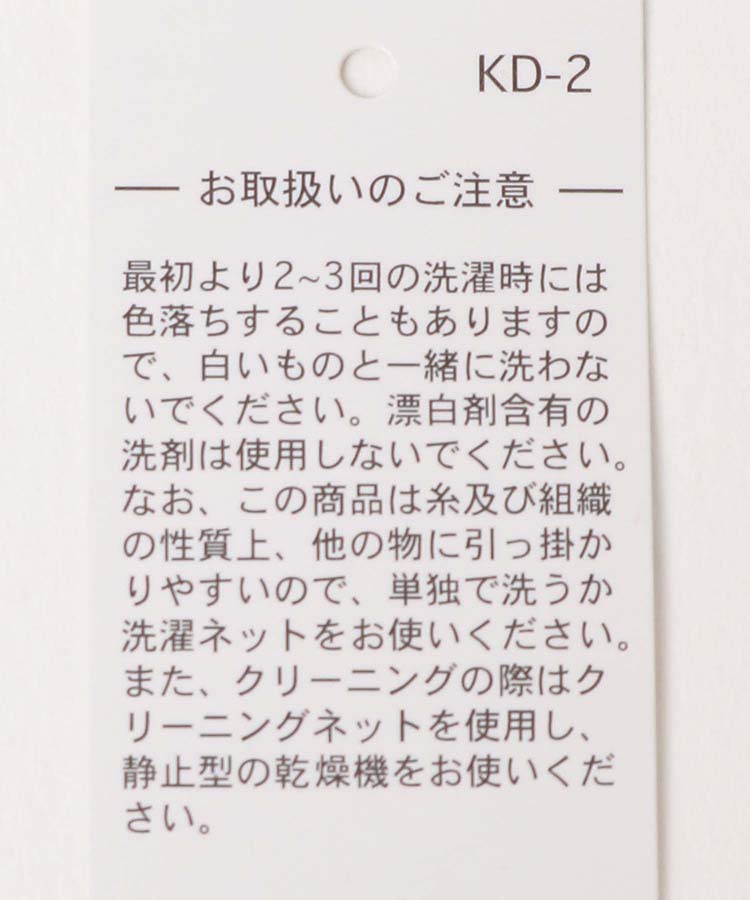 KD-2
お取扱いのご注意
最初より2~3回の洗濯時には
色落ちすることもありますの
で、白いものと一緒に洗わな
いでください。漂白剤含有の
洗剤は使用しないでください。
なお、この商品は糸及び組織
の性質上、他の物に引っ掛か
りやすいので、単独で洗うか
洗濯ネットをお使いください。
また、クリーニングの際はク
リーニングネットを使用し、
静止型の乾燥機をお使いくだ
さい。